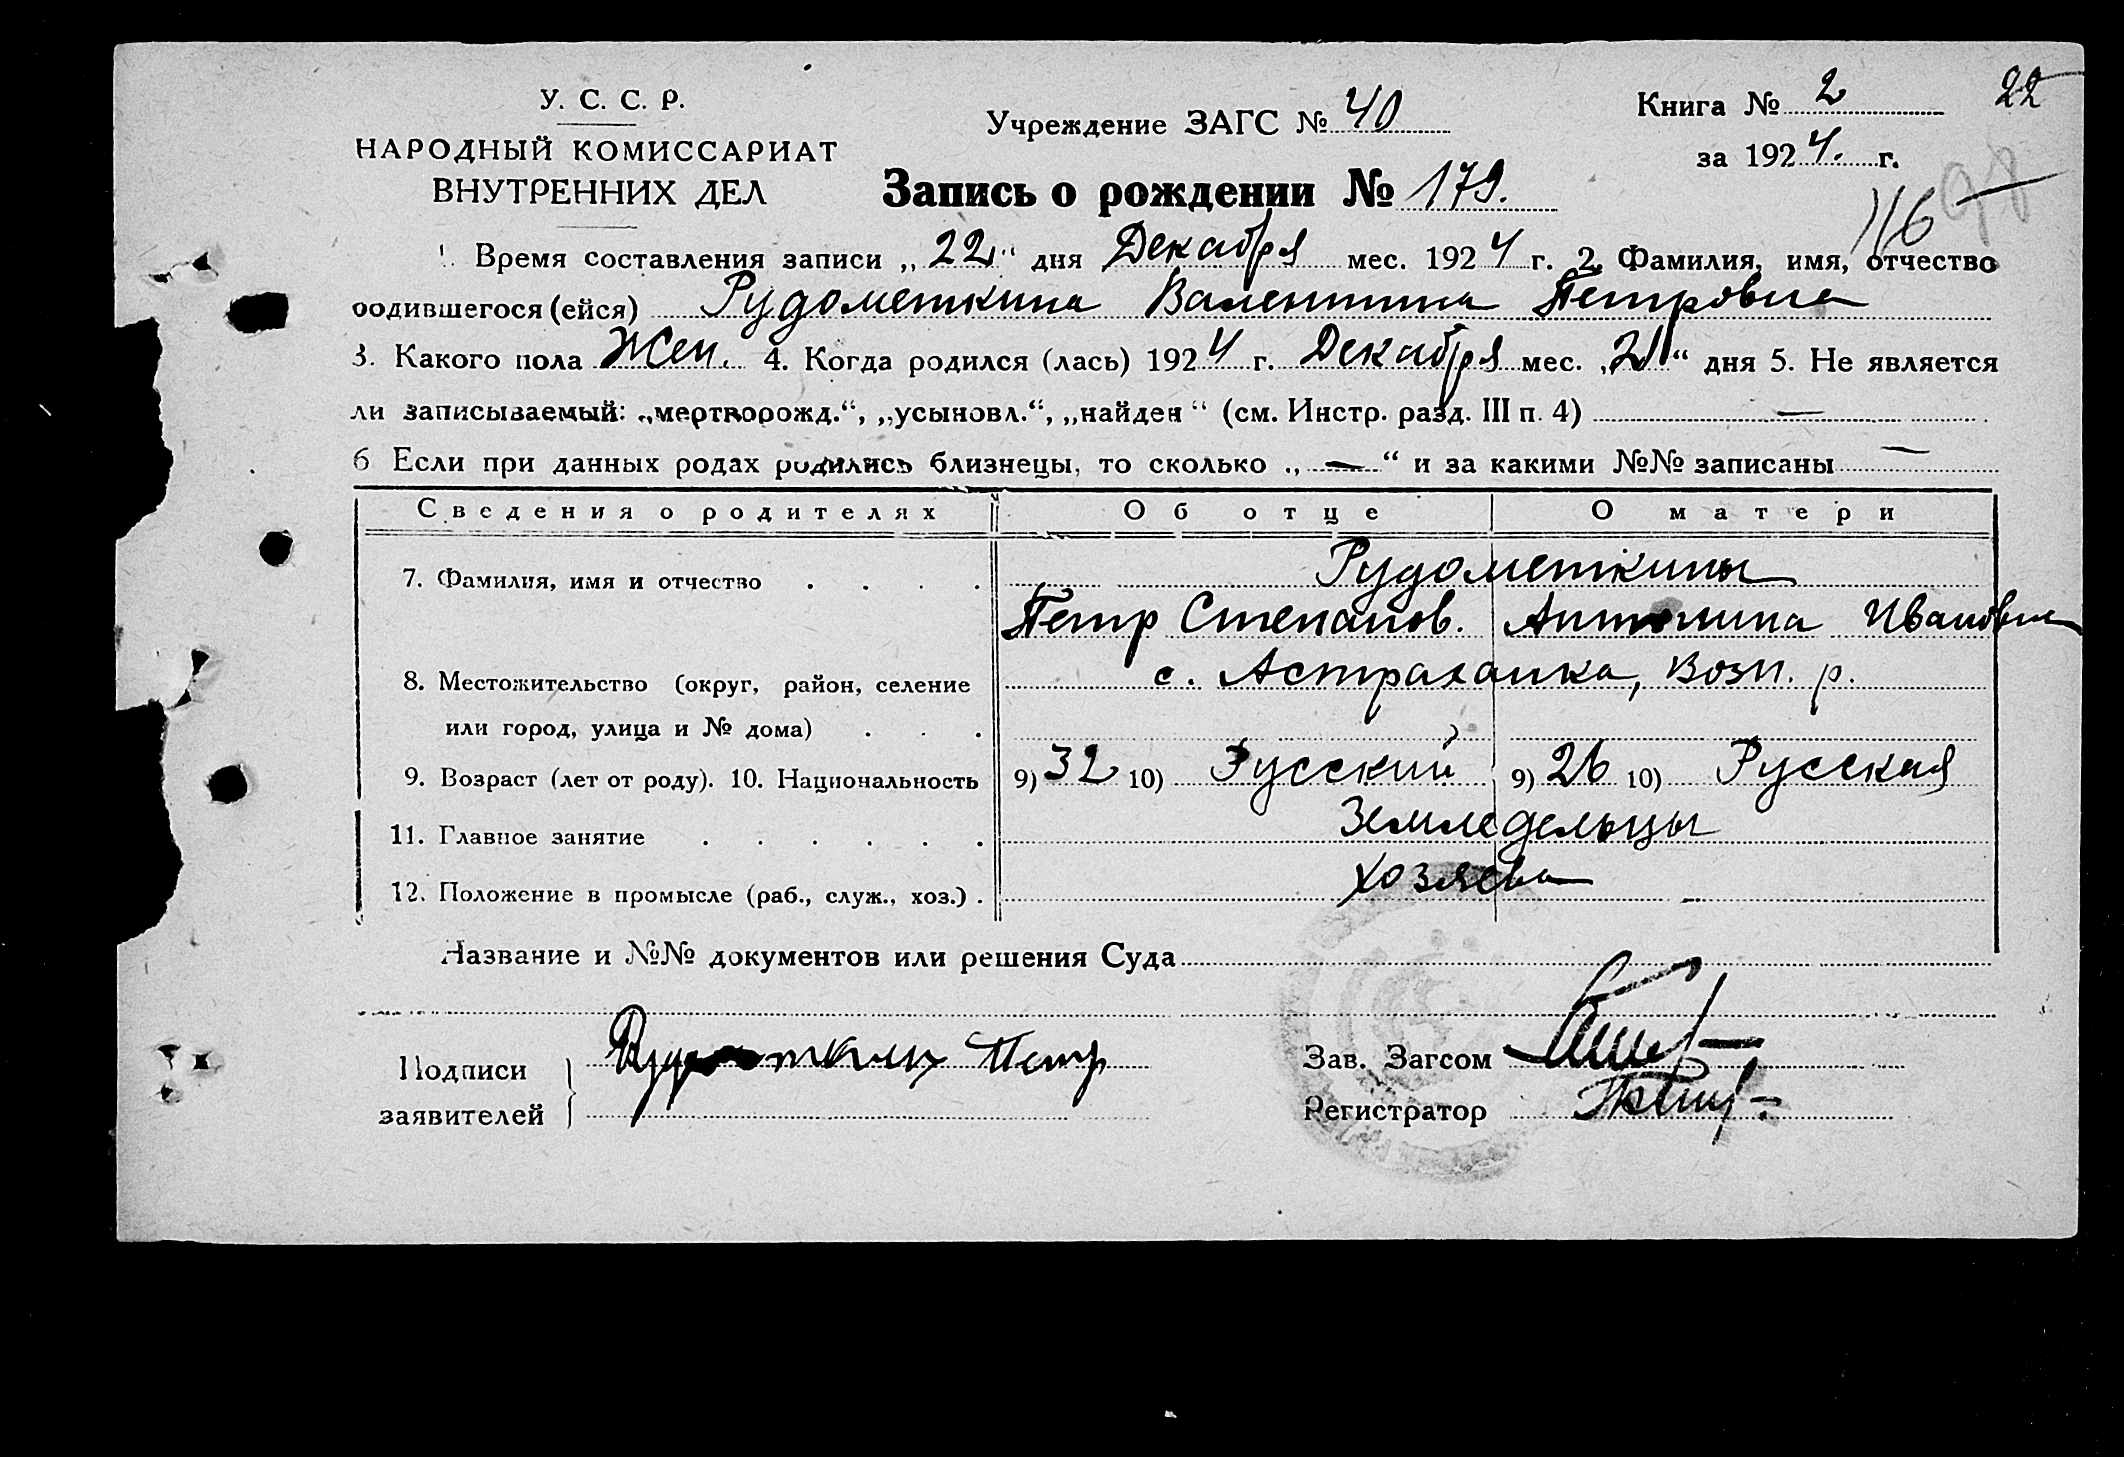 У. С. С. Р.
НАРОДНЫЙ КОМИССАРИАТ
ВНУТРЕННИХ ДЕЛ
Учреждение ЗАГС № 40
Книга № 2
22
за 1924. г.
98
Запись о рождении № 179.
116
1. Время составления записи „22“ дня Декабря мес. 1924 г. 2. Фамилия, имя, отчество
родившегося (ейся) Рудометкина Валентина Петровна
3. Какого пола Жен. 4. Когда родился (лась) 1924 г. Декабря мес. „21“ дня 5. Не является
ли записываемый: „мертворожд.“, „усыновл.“, „найден“ (см. Инстр. разд. III п. 4) —
6 Если при данных родах родились близнецы, то сколько „—“ и за какими №№ записаны —
Сведения о родителях Об отце О матери
7. Фамилия, имя и отчество . . . . Рудометкины
Петр Степанов. Антонина Ивановна
8. Местожительство (округ, район, селение с. Астраханка, Возн. р.
или город, улица и № дома) . . .
9. Возраст (лет от роду). 10. Национальность 9) 32 10) Русский 9) 26 10) Русская
11. Главное занятие . . . . . . Земледельцы
12. Положение в промысле (раб., служ., хоз.) . хозяева
Название и №№ документов или решения Суда
Подписи
заявителей
Рудометкин Петр
Зав. Загсом
Регистратор